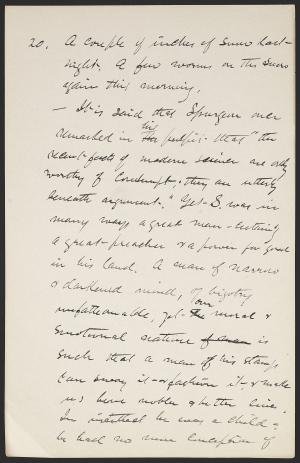 20. A couple of inches of snow last-
night. A few worms on the snow
again this morning.
— It is said that Spurgeon once
remarked in his pulpit that "the
recent facts of modern science are only
worthy of contempt; they are utterly
beneath argument." Yet S. was in
many ways a great man - certainly
a great preacher & a power for good
in his land. A man of narrow
& darkened mind, of bigotry
unfathomable, yet our moral &
emotional nature is
such that a man of his stamp
can sway it & fashion it & make
us live nobler & better lives.
In intellect he was a child -
he had no more conception of